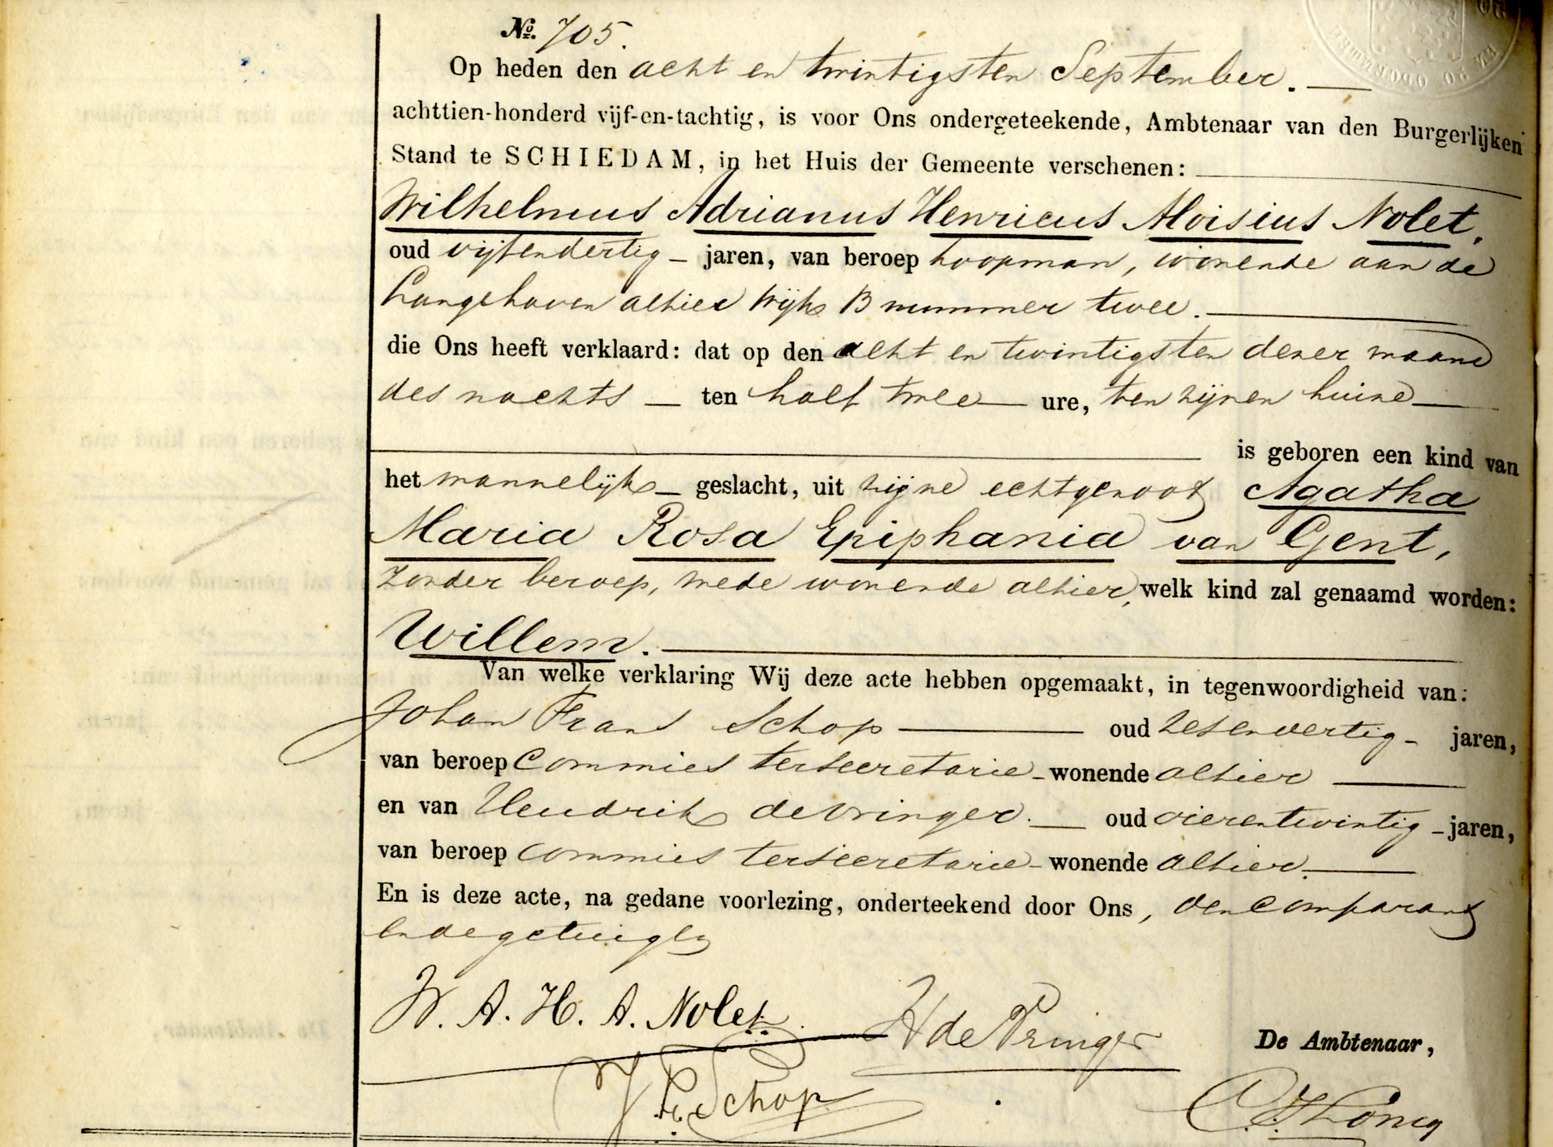 No. 705.
Op heden den acht en twintigsten September.
achttien-honderd vijf-en-tachtig, is voor Ons ondergeteekende, Ambtenaar van den Burgerlijken
Stand te SCHIEDAM, in het Huis der Gemeente verschenen:
Wilhelmus Adrianus Henricus Aloisius Nolet,
oud vijfendertig jaren, van beroep koopman, wonende aan de
Langehaven alhier Wijk B nummer twee.
die Ons heeft verklaard: dat op den acht en twintigsten dezer maand
des nachts ten half twee ure, ten zijnen huize
is geboren een kind van
het mannelijk geslacht, uit zijne echtgenoot Agatha
Maria Rosa Epiphania van Gent,
zonder beroep, mede wonende alhier, welk kind zal genaamd worden:
Willem.
Van welke verklaring Wij deze acte hebben opgemaakt, in tegenwoordigheid van:
Johan Frans Schop oud zesenveertig jaren,
van beroep commies ter secretarie wonende alhier
en van Hendrik de Vringer. oud vierentwintig jaren,
van beroep commies ter secretarie wonende alhier.
En is deze acte, na gedane voorlezing, onderteekend door Ons, den comparant
en de getuigen
W. A. H. A. Nolet. H de Vringer
De Ambtenaar,
J. F. Schop